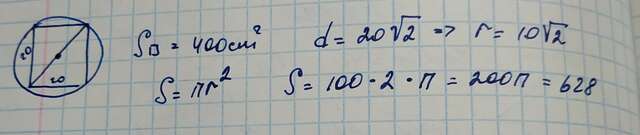 20
20
S□ = 400cm² d = 20√2 => r = 10√2
S = πr² S = 100 · 2 · π = 200π = 628